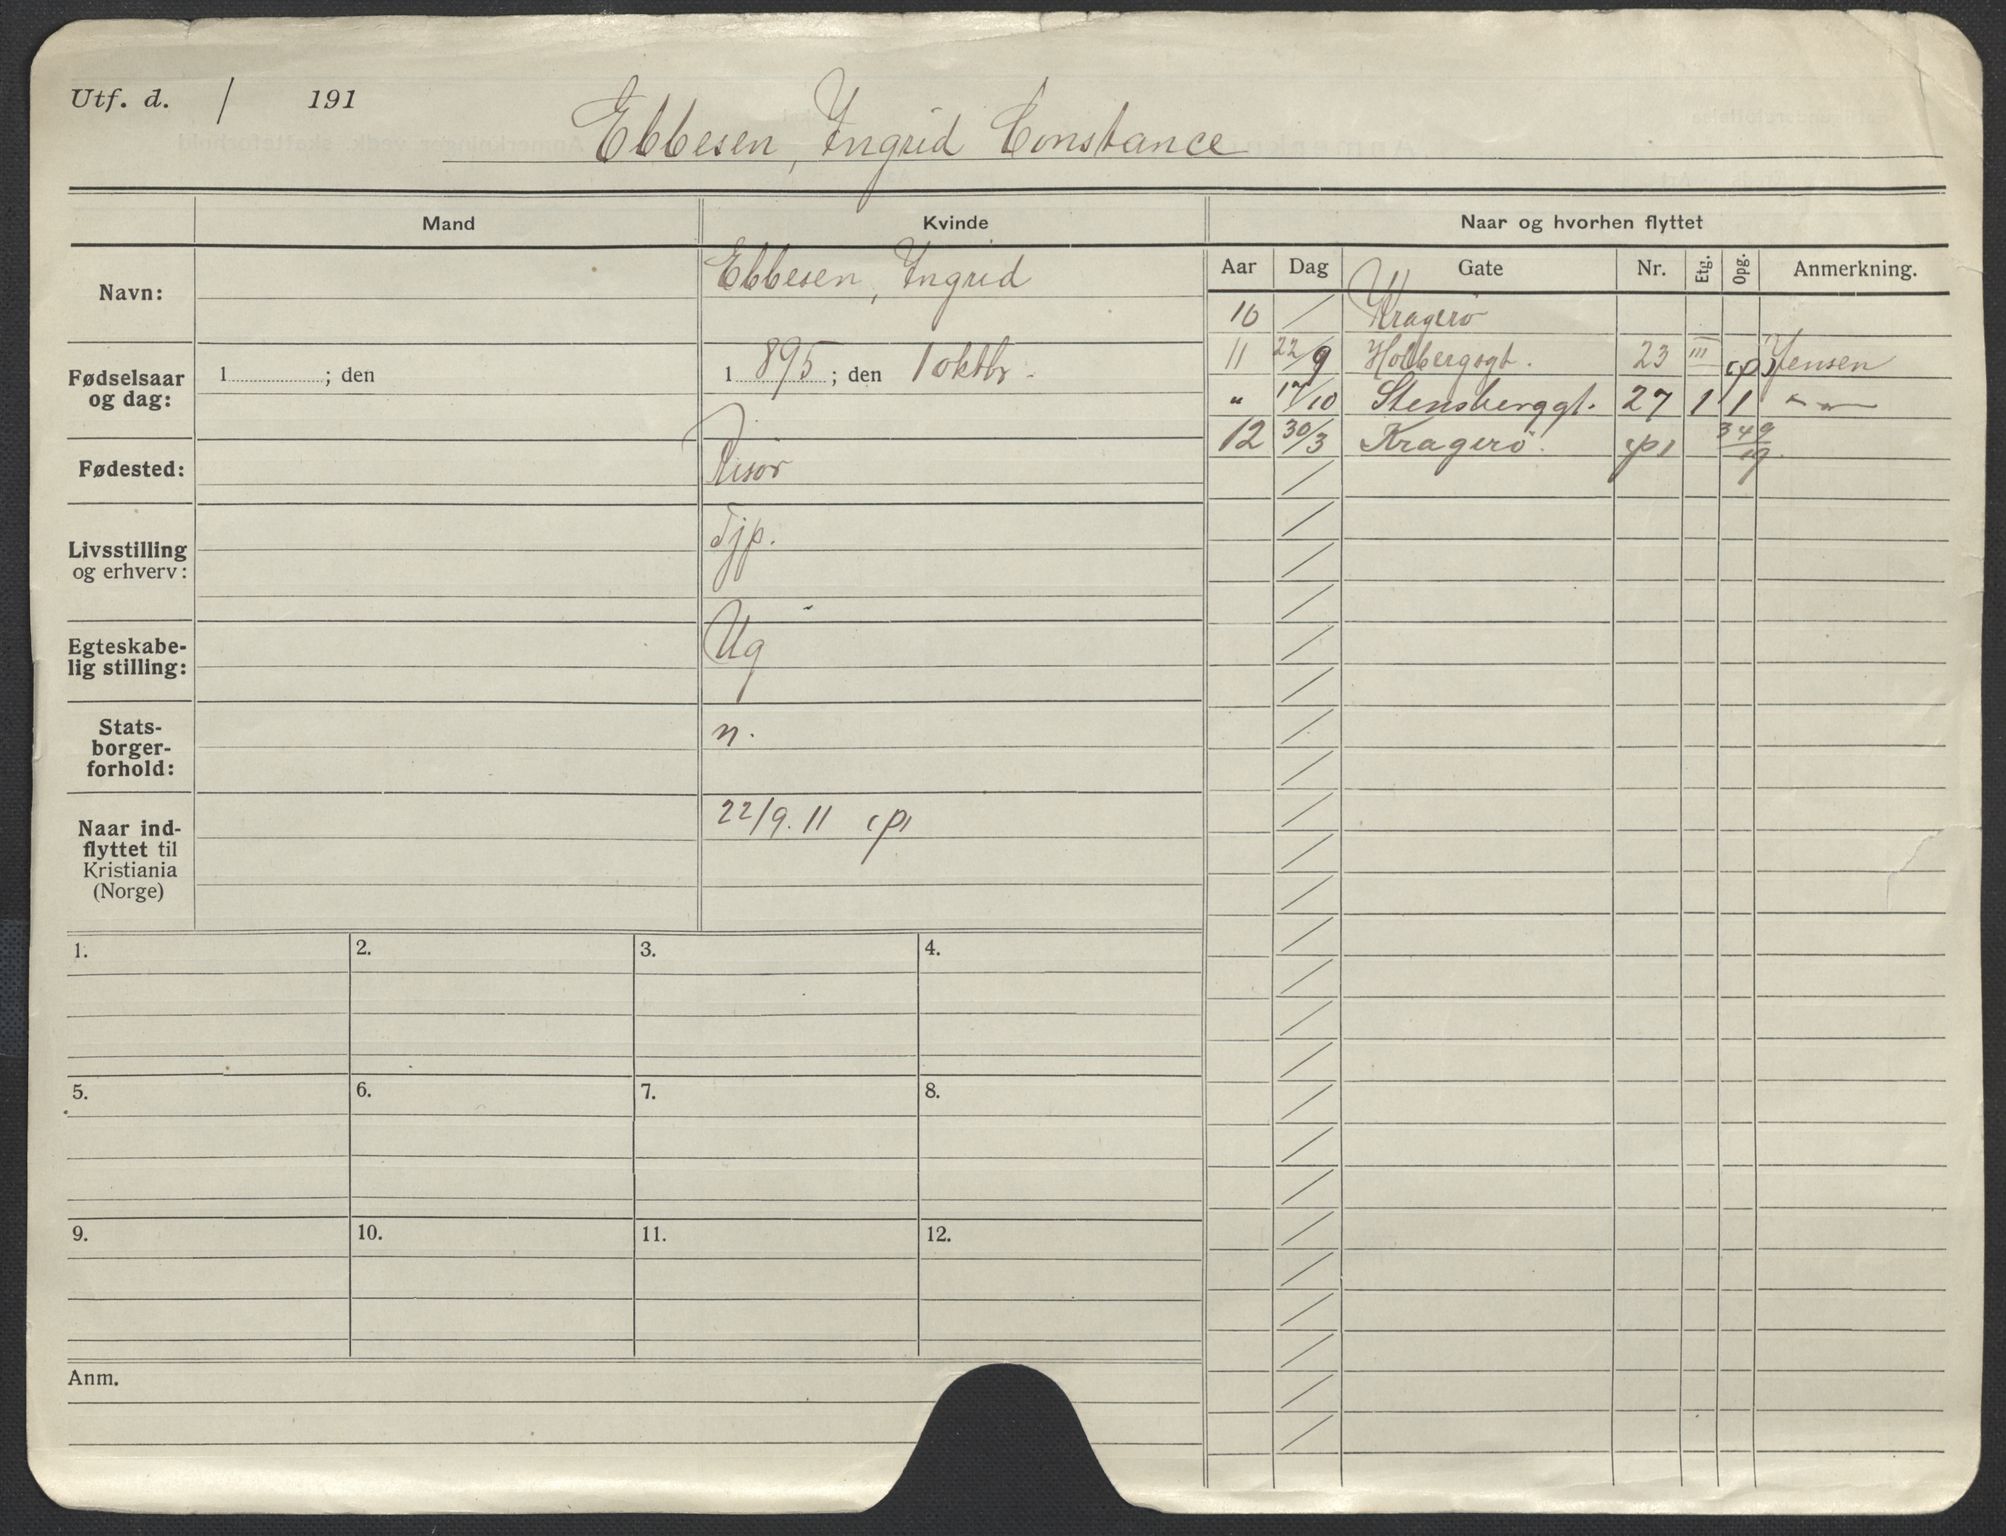 Utf. d. / 191
Ebbesen, Ingrid Constance
Mand Kvinde Naar og hvorhen flyttet
Aar Dag Gate Nr. Etg. Opg. Anmerkning.
Navn: Ebbesen, Ingrid
Fødselsaar og dag: 1 ; den 1 895 ; den 1 oktbr.
Fødested: Risør
Livsstilling og erhverv: Tjp.
Egteskabe-
lig stilling: Ug
Stats-
borger-
forhold: n.
Naar ind-
flyttet til
Kristiania
(Norge) 22/9. 11 (p)
10 / Kragerø
11 22/9 Holbergsgt. 23 III (p) Jensen
" 17/10 Stensberggt. 27 1 1
12 30/3 Kragerø. (p) 349/19.
1. 2. 3. 4.
5. 6. 7. 8.
9. 10. 11. 12.
Anm.